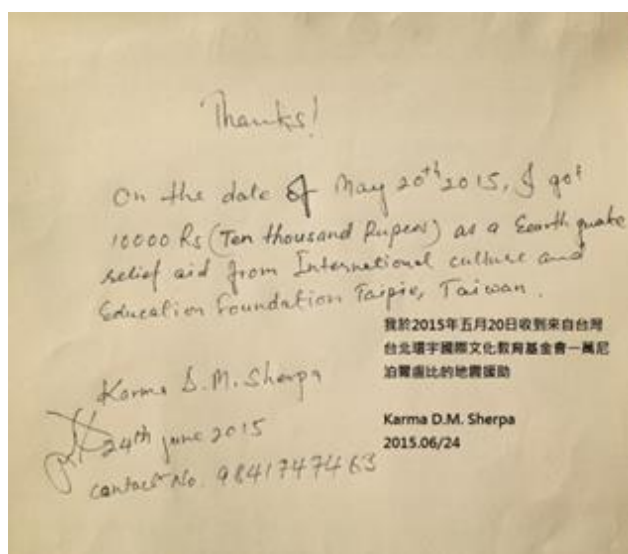 Thanks!
On the date of May 20th 2015, I got
10000 Rs (Ten thousand Rupees) as a Eearth quake
relief aid from International culture and
Education Foundation Taipie, Taiwan.
我於2015年五月20日收到來自台灣
台北環宇國際文化教育基金會一萬尼
泊爾盧比的地震援助
Karma D.M. Sherpa
24th june 2015
contact No. 9841747463
Karma D.M. Sherpa
2015.06/24